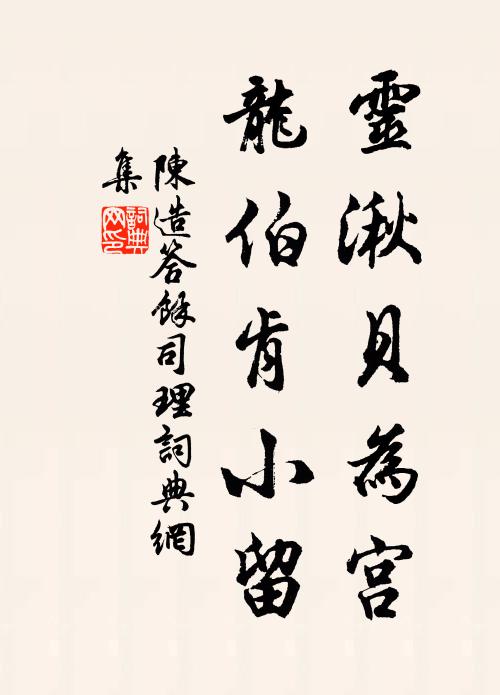 靈湫貝為宮
龍伯肯小留
陳造答餘司理詞典網
集
詞典網印